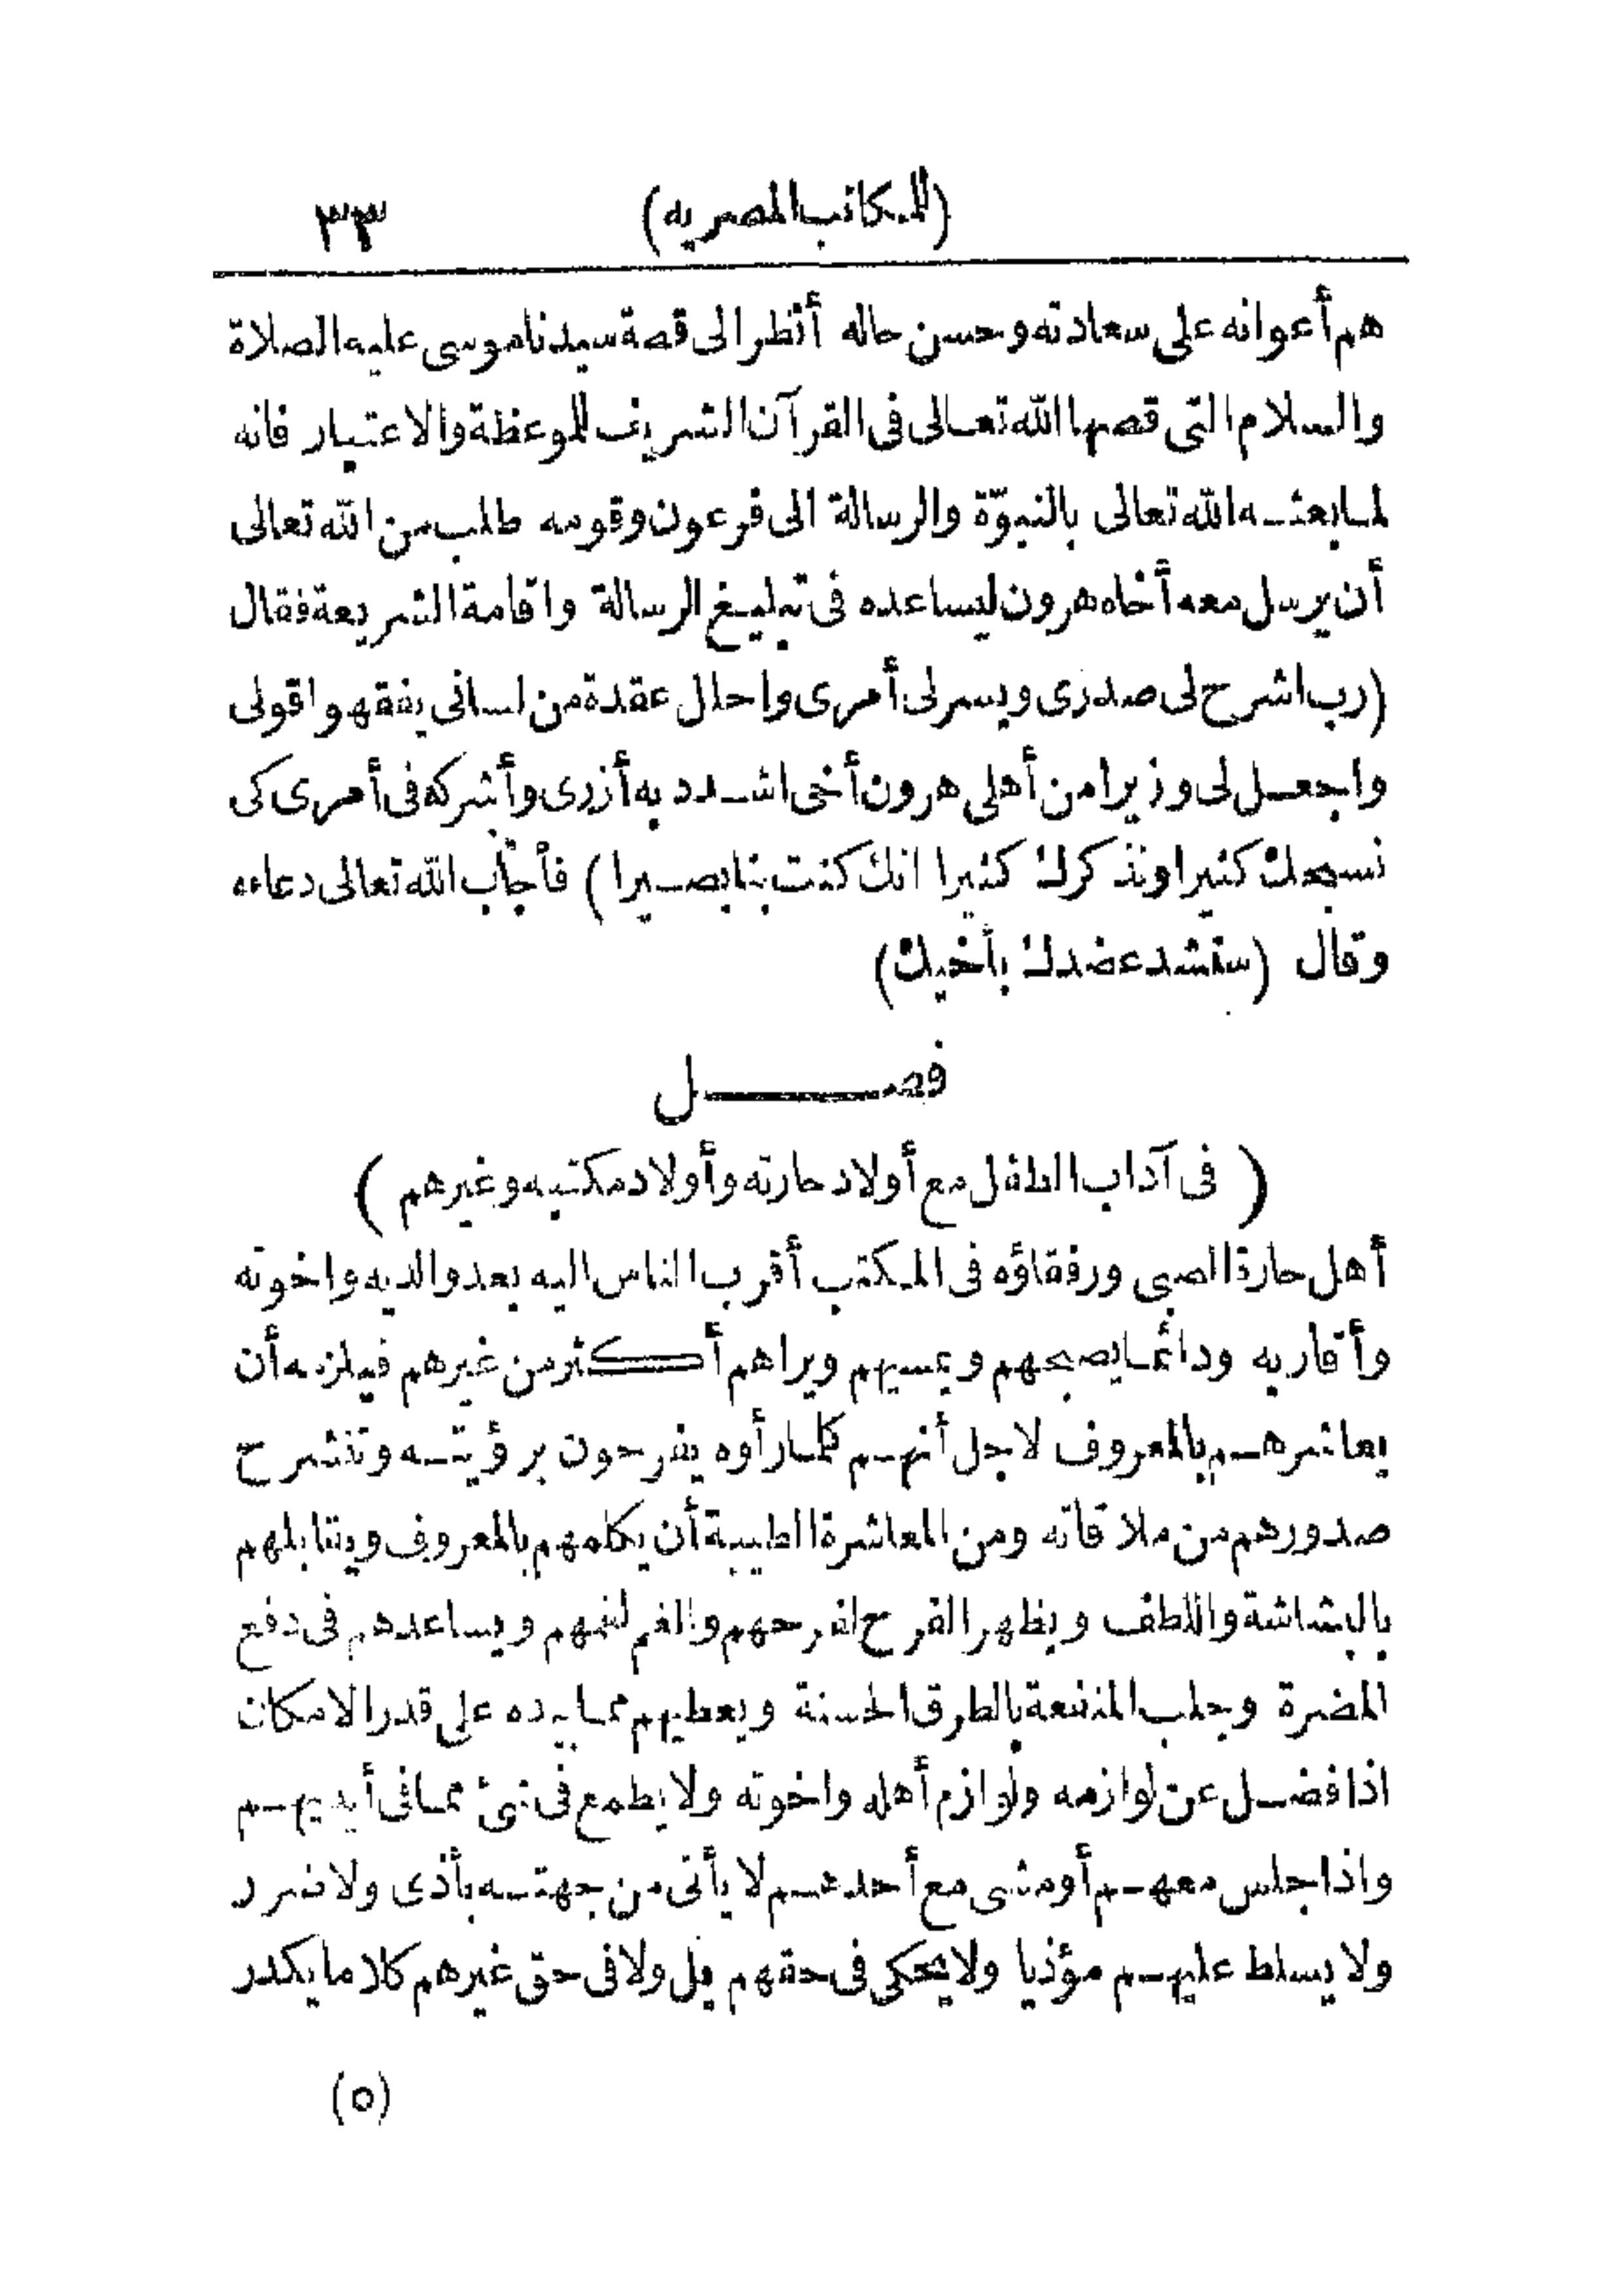 (للمكاتب المصريه) ٣٣
هم أعوانه على سعادته وحسن حاله أنظر الى قصة سيدنا موسى عليه الصلاة
والسلام التى قصها الله تعالى فى القرآن الشريف للموعظة والاعتبار فانه
لما بعثه الله تعالى بالنبوّة والرسالة الى فرعون وقومه طلب من الله تعالى
أن يرسل معه أخاه هرون ليساعده فى تبليغ الرسالة واقامة الشريعة فقال
(رب اشرح لى صدرى ويسر لى أمرى واحلل عقدة من لسانى يفقهوا قولى
واجعل لى وزيرا من أهلى هرون أخى اشدد به أزرى وأشركه فى أمرى كى
نسبحك كثيرا ونذكرك كثيرا انك كنت بنا بصيرا) فأجاب الله تعالى دعاءه
وقال (سنشد عضدك بأخيك)
فصل
(فى آداب الطفل مع أولاد حارته وأولاد مكتبه وغيرهم)
أهل حارة الصبى ورفقاؤه فى المكتب أقرب الناس اليه بعد والديه واخوته
وأقاربه ودائما يصبحهم ويمسيهم ويراهم أكثر من غيرهم فيلزمه أن
يعاشرهم بالمعروف لاجل أنهم كلما رأوه يفرحون برؤيته وتنشرح
صدورهم من ملاقاته ومن المعاشرة الطيبة أن يكلمهم بالمعروف ويقابلهم
بالبشاشة واللطف ويظهر الفرح لفرحهم والغم لغمهم ويساعدهم فى دفع
المضرة وجلب المنفعة بالطرق الحسنة ويعطيهم مما بيده على قدر الامكان
اذا فضل عن لوازمه ولوازم أهله واخوته ولا يطمع فى شئ مما فى أيديهم
واذا جلس معهم أو مشى مع أحدهم لا يأتى من جهته بأذى ولا ضرر
ولا يسلط عليهم مؤذيا ولا يحكى فى حقهم بل ولا فى حق غيرهم كلاما يكدر
(٥)